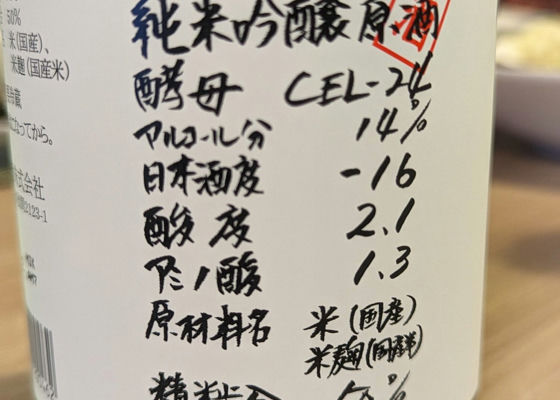 50%
米(国産)、
米麹(国産米)
純米吟醸原酒
酵母 CEL-24
アルコール分 14%
日本酒度 -16
酸度 2.1
アミノ酸 1.3
原材料名 米(国産)
米麹(国産米)
精米歩合 50%
なってから。
式会社
2123-1